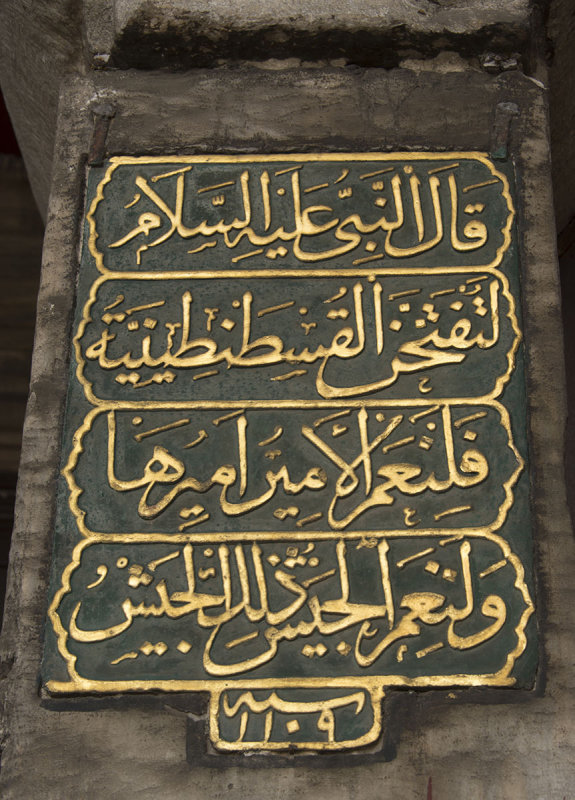 قَالَ النَّبِيُّ عَلَيْهِ السَّلَامُ
لَتُفْتَحَنَّ الْقُسْطَنْطِينِيَّةُ
فَلَنِعْمَ الْأَمِيرُ أَمِيرُهَا
وَلَنِعْمَ الْجَيْشُ ذَلِكَ الْجَيْشُ
سنه ١١٠٩